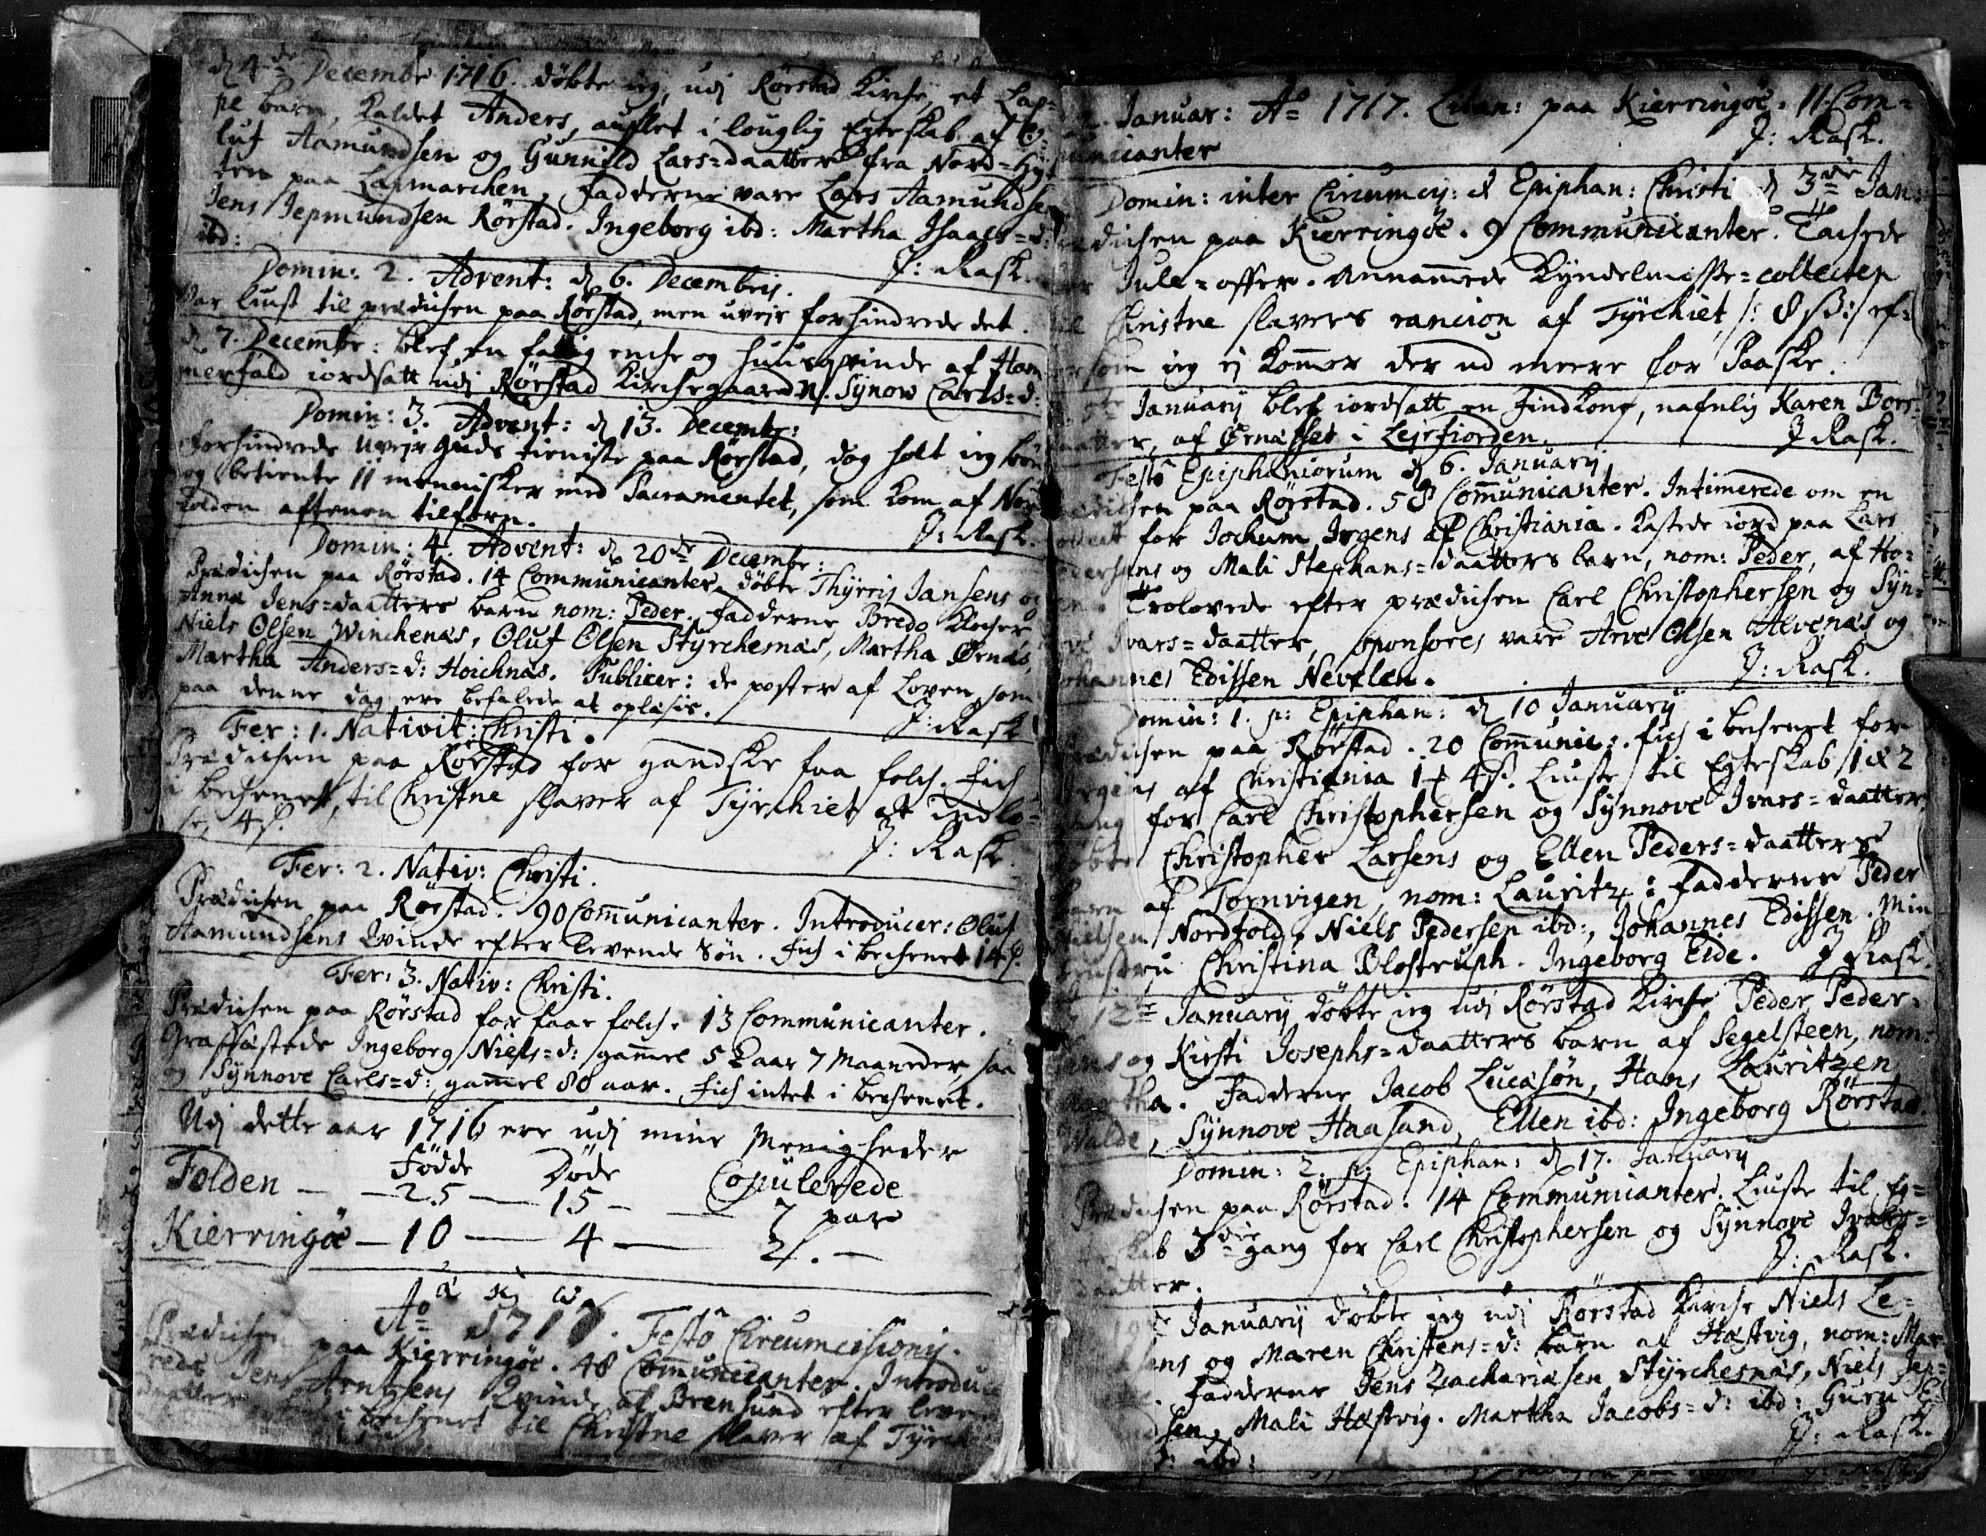 d 4de Decembr 1716. døbte ieg, udj Rørstad Kirche, et Lap-
pe barn, kaldet Anders, auflet i louglig Egteskab af O-
luf Aamundsen og Gunnild Lars=daatter fra Nord=
paa Lapmarchen. Fadderne vare Lars Aamundsen
Jens Jepmundsen Rørstad. Ingeborg ibd: Martha Isaacs=d:
ibd: J: Rask.
Domin: 2. Advent: d 6. Decembris.
Var liust til prædichen paa Rørstad, men uvejr forhindrede det.
d 7. Decembr: blef en fattig enche og huusqvinde af Ham
merfald iordsatt udj Rørstad Kirchegaard N. Synow Carls=d:
Domin: 3. Advent: d 13. Decembr:
Forhindrede uvejr Guds tieniste paa Rørstad, dog holt ieg bøn
og betiente 11 mennisker med Sacramentet, som kom af Nor
folden aftenen tilforn. J: Rask.
Domin: 4. Advent: d 20de Decembr:
Prædichen paa Rørstad. 14 Communicanter. døbte Thyrris Jansens og
Anna Jens=daatters barn nom: Peder. Fadderne Bredo Klocher
Niels Olsen Winchenæs, Oluf Olsen Styrchesnæs, Martha Ørnæs,
Martha Anders=d: Hoichnæs. Publicer: de poster af Loven, som
paa denne dag ere befalede at oplæsis. J: Rask
Fer: 1. Nativit: Christi.
Prædichen paa Rørstad for gandske faa folch. Fich
i bechenet, til Christne slaver af Tyrchiet at indlø-
se, 4 s. J: Rask.
Fer: 2. Nativ: Christi.
Prædichen paa Rørstad. 90 Communicanter. Introducer: Oluf
Aamundsens Qvinde efter levende Søn. Fich i bechenet 14 s.
Fer: 3. Nativ: Christi.
Prædichen paa Rørstad for faae folch. 13 Communicanter.
Graffæstede Ingeborg Niels=d: gammel 5 aar 7 Maaneder, saa
og Synnove Carls=d: gammel 80 aar. Fich intet i bechenet.
Udj dette aar 1716 ere udj mine Menigheder
Fødde Døde Copulerede
Folden — 25 — 15 — 7 par
Kierringøe — 10 — 4 — 2. —
Ao 1717. Festo Circumcisionis.
Prædichen paa Kierringøe. 48 Communicanter. Introduce
rede Jens Arntsens Qvinde af Brensund efter leven
daatter bechenet til Christne slaver af Tyrch
2. Januar: Ao 1717. Litan: paa Kierringøe. 11 Com=
municanter J: Rask.
Domin: inter Circumcis: & Epiphan: Christi d 3die Jan:
Prædichen paa Kierringøe. 9 Communicanter. Tachede
for Jule=offer. Annammede Kyndelmisse=collecten
til Christne slavers rancion af Tyrchiet /: 8 s :/ ef=
tersom ieg ej kommer der ud meere for Paaske.
5te January blef iordsatt en Findkone, nafnlig Karen Bors=
daatter, af Ørnæsset i Lejrfiorden. J Rask.
Festo Epiphaniorum d 6. January
Prædichen paa Rørstad. 58 Communicanter. Intimerede om en
collect for Jochum Jrgens af Christiania. Kastede iord paa Lars
Pedersens og Mali Stephans=daatters barn, nom: Peder, af Ho=
Trolovede efter prædichen Carl Christophersen og Syn=
nove Ivars=daatter, sponsores vare Arve Olsen Alvenæs og
Johannes Edissen Nevelen. J: Rask.
Domin: 1. p: Epiphan: d 10 January
Prædichen paa Rørstad. 20 Communic:. fich i bechenet for
Jrgens af Christiania 1 4 s. Liuste til Egteskab 1 & 2
gang for Carl Christophersen og Synnove Ivars=daatter
døbte Christopher Larsens og Ellen Peders=daatters
barn af Tornvigen, nom: Lauritz: Fadderne Peder
Nielsen Nordfold, Niels Pedersen ibd:, Johannes Edissen. Min
Hustru Christina Blostruph. Ingeborg Eide. J Rask.
12te January døbte ieg udj Rørstad Kirche Peder Peder=
sens og Kirsti Josephs=daatters barn af Segelsteen, nom:
Martha. Fadderne Jacob Lucasøn, Hans Lauritzen
Walde, Synnove Haasand, Ellen ibd: Ingeborg Rørstad.
Domin: 2. p: Epiphan: d 17. January
Prædichen paa Rørstad. 14 Communicanter. Liuste til Eg=
teskab 3die gang for Carl Christophersen og Synnove Ivars=
daatter. J: Rask.
19de January døbte ieg udj Rørstad Kirche Niels Le=
sens og Maren Christens=d: barn af Hæstvig, nom: Mar=
Fadderne Jens Zachariæsen Styrchesnæs, Niels Jep=
sen, Mali Hæstvig. Martha Jacobs=d: ibd: Guru
ibd: J: Rask.